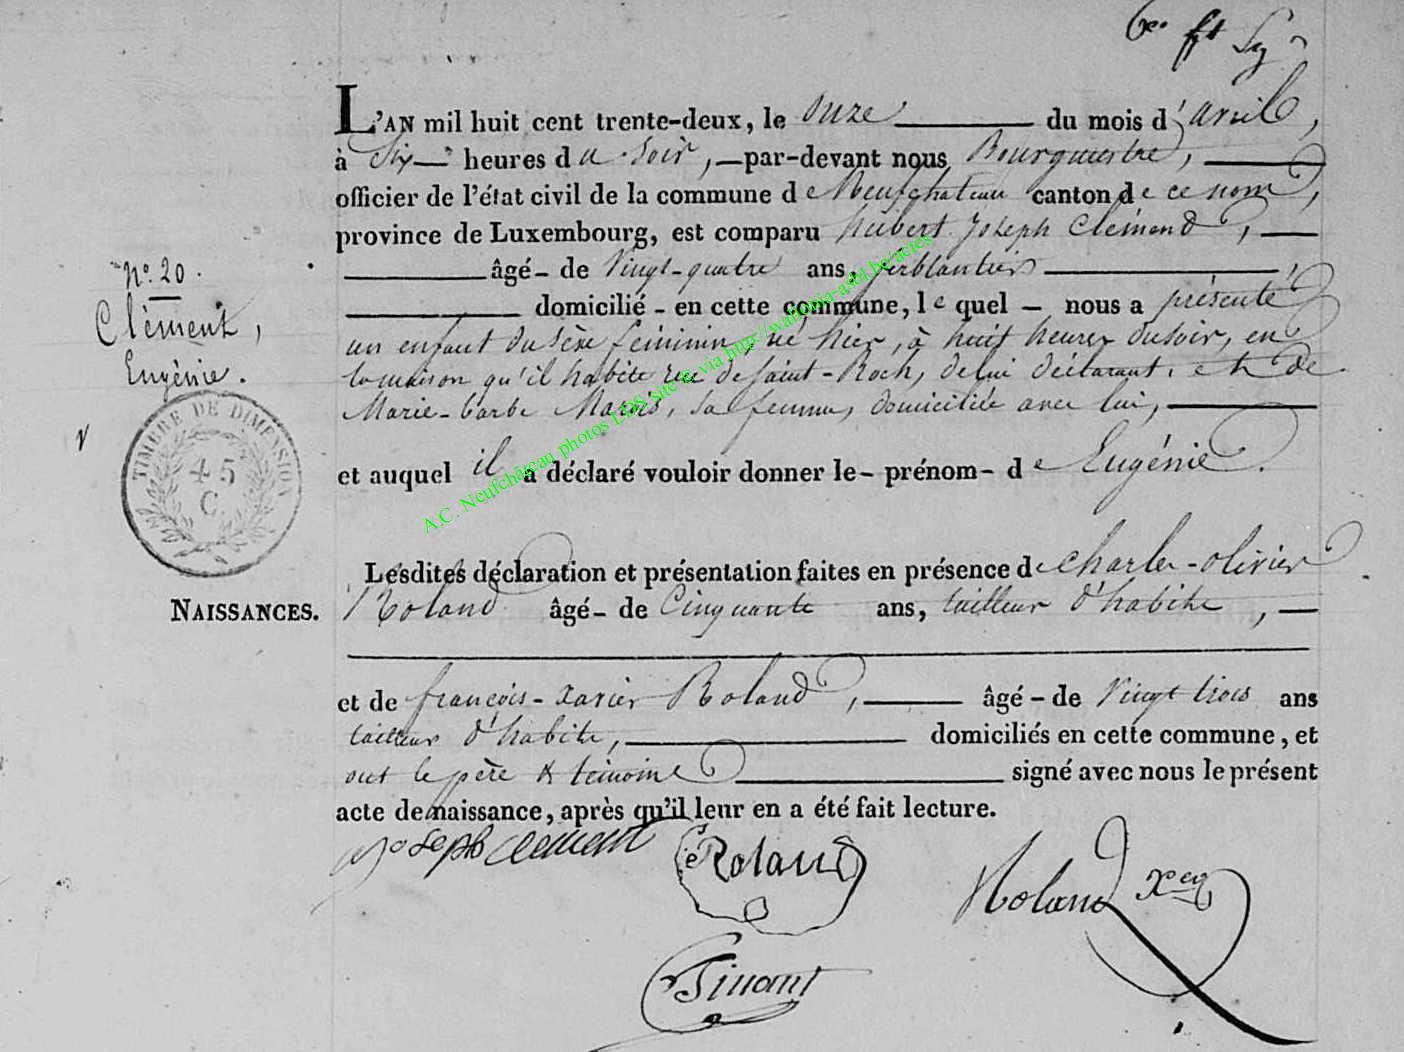 L'AN mil huit cent trente-deux, le onze du mois d'avril,
à six heures du soir, par-devant nous Bourgmestre,
officier de l'état civil de la commune de Neufchateau canton de ce nom,
province de Luxembourg, est comparu hubert Joseph Clémend,
N.º 20.
âgé - de Vingt-quatre ans, ferblantier,
Clément,
domicilié - en cette commune, lequel - nous a présenté
Eugénie.
un enfant du sexe féminin, né hier, à huit heures du soir, en
la maison qu'il habite rue de Saint-Roch, de lui déclarant, et de
Marie-barbe, sa femme, domiciliée avec lui,
TIMBRE DE DIMENSION
45
C.
et auquel il a déclaré vouloir donner le - prénom - de Eugénie.
A.C. Neufchâteau photos LDS site & via http://wallonia-asbl.be/actes
Lesdites déclaration et présentation faites en présence de Charles-olivier
NAISSANCES.
Roland âgé - de Cinquante ans, tailleur d'habits,
et de françois-xavier Roland, âgé - de Vingt trois ans
tailleur d'habits, domiciliés en cette commune, et
ont le père & témoins signé avec nous le présent
acte de naissance, après qu'il leur en a été fait lecture.
Joseph Clement
Roland
Roland Xer
Tinant